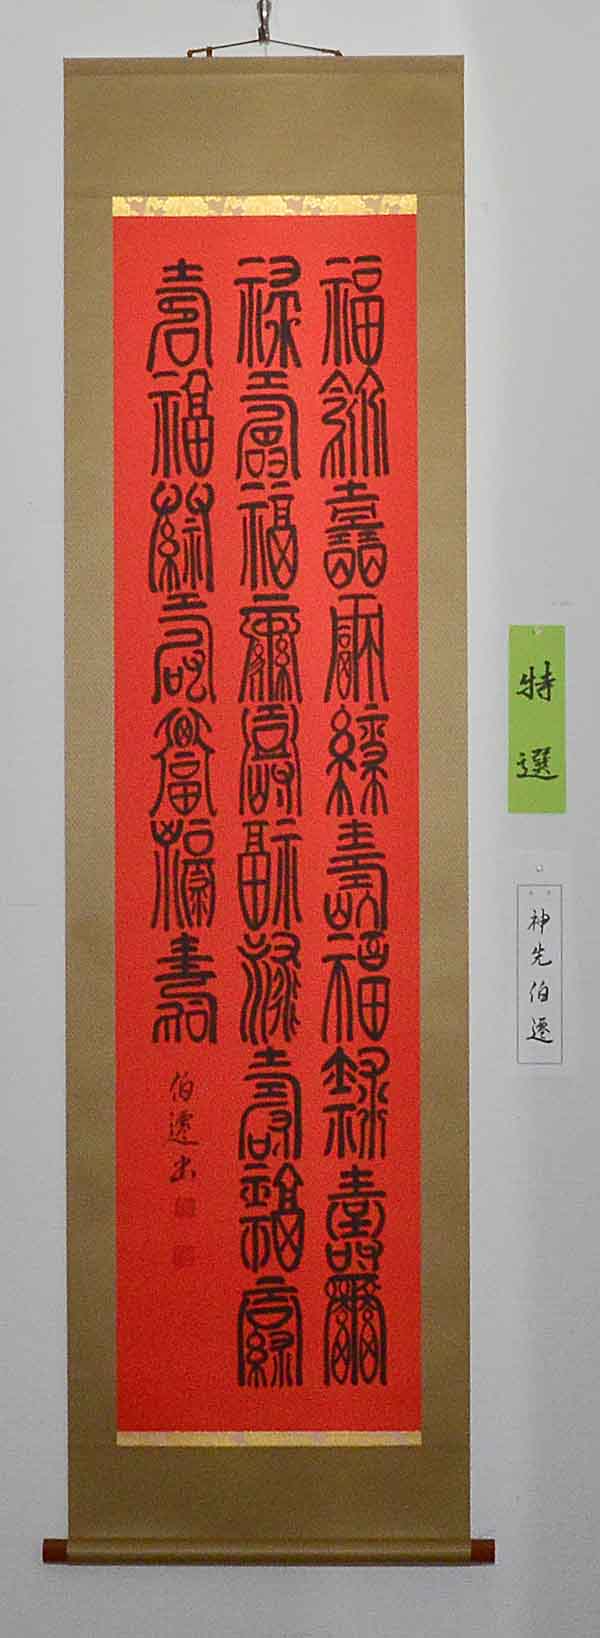 福祿壽福祿壽福祿壽福
祿壽福祿壽福祿壽福祿
壽福祿壽福祿壽
伯遷書
特選
神先伯遷